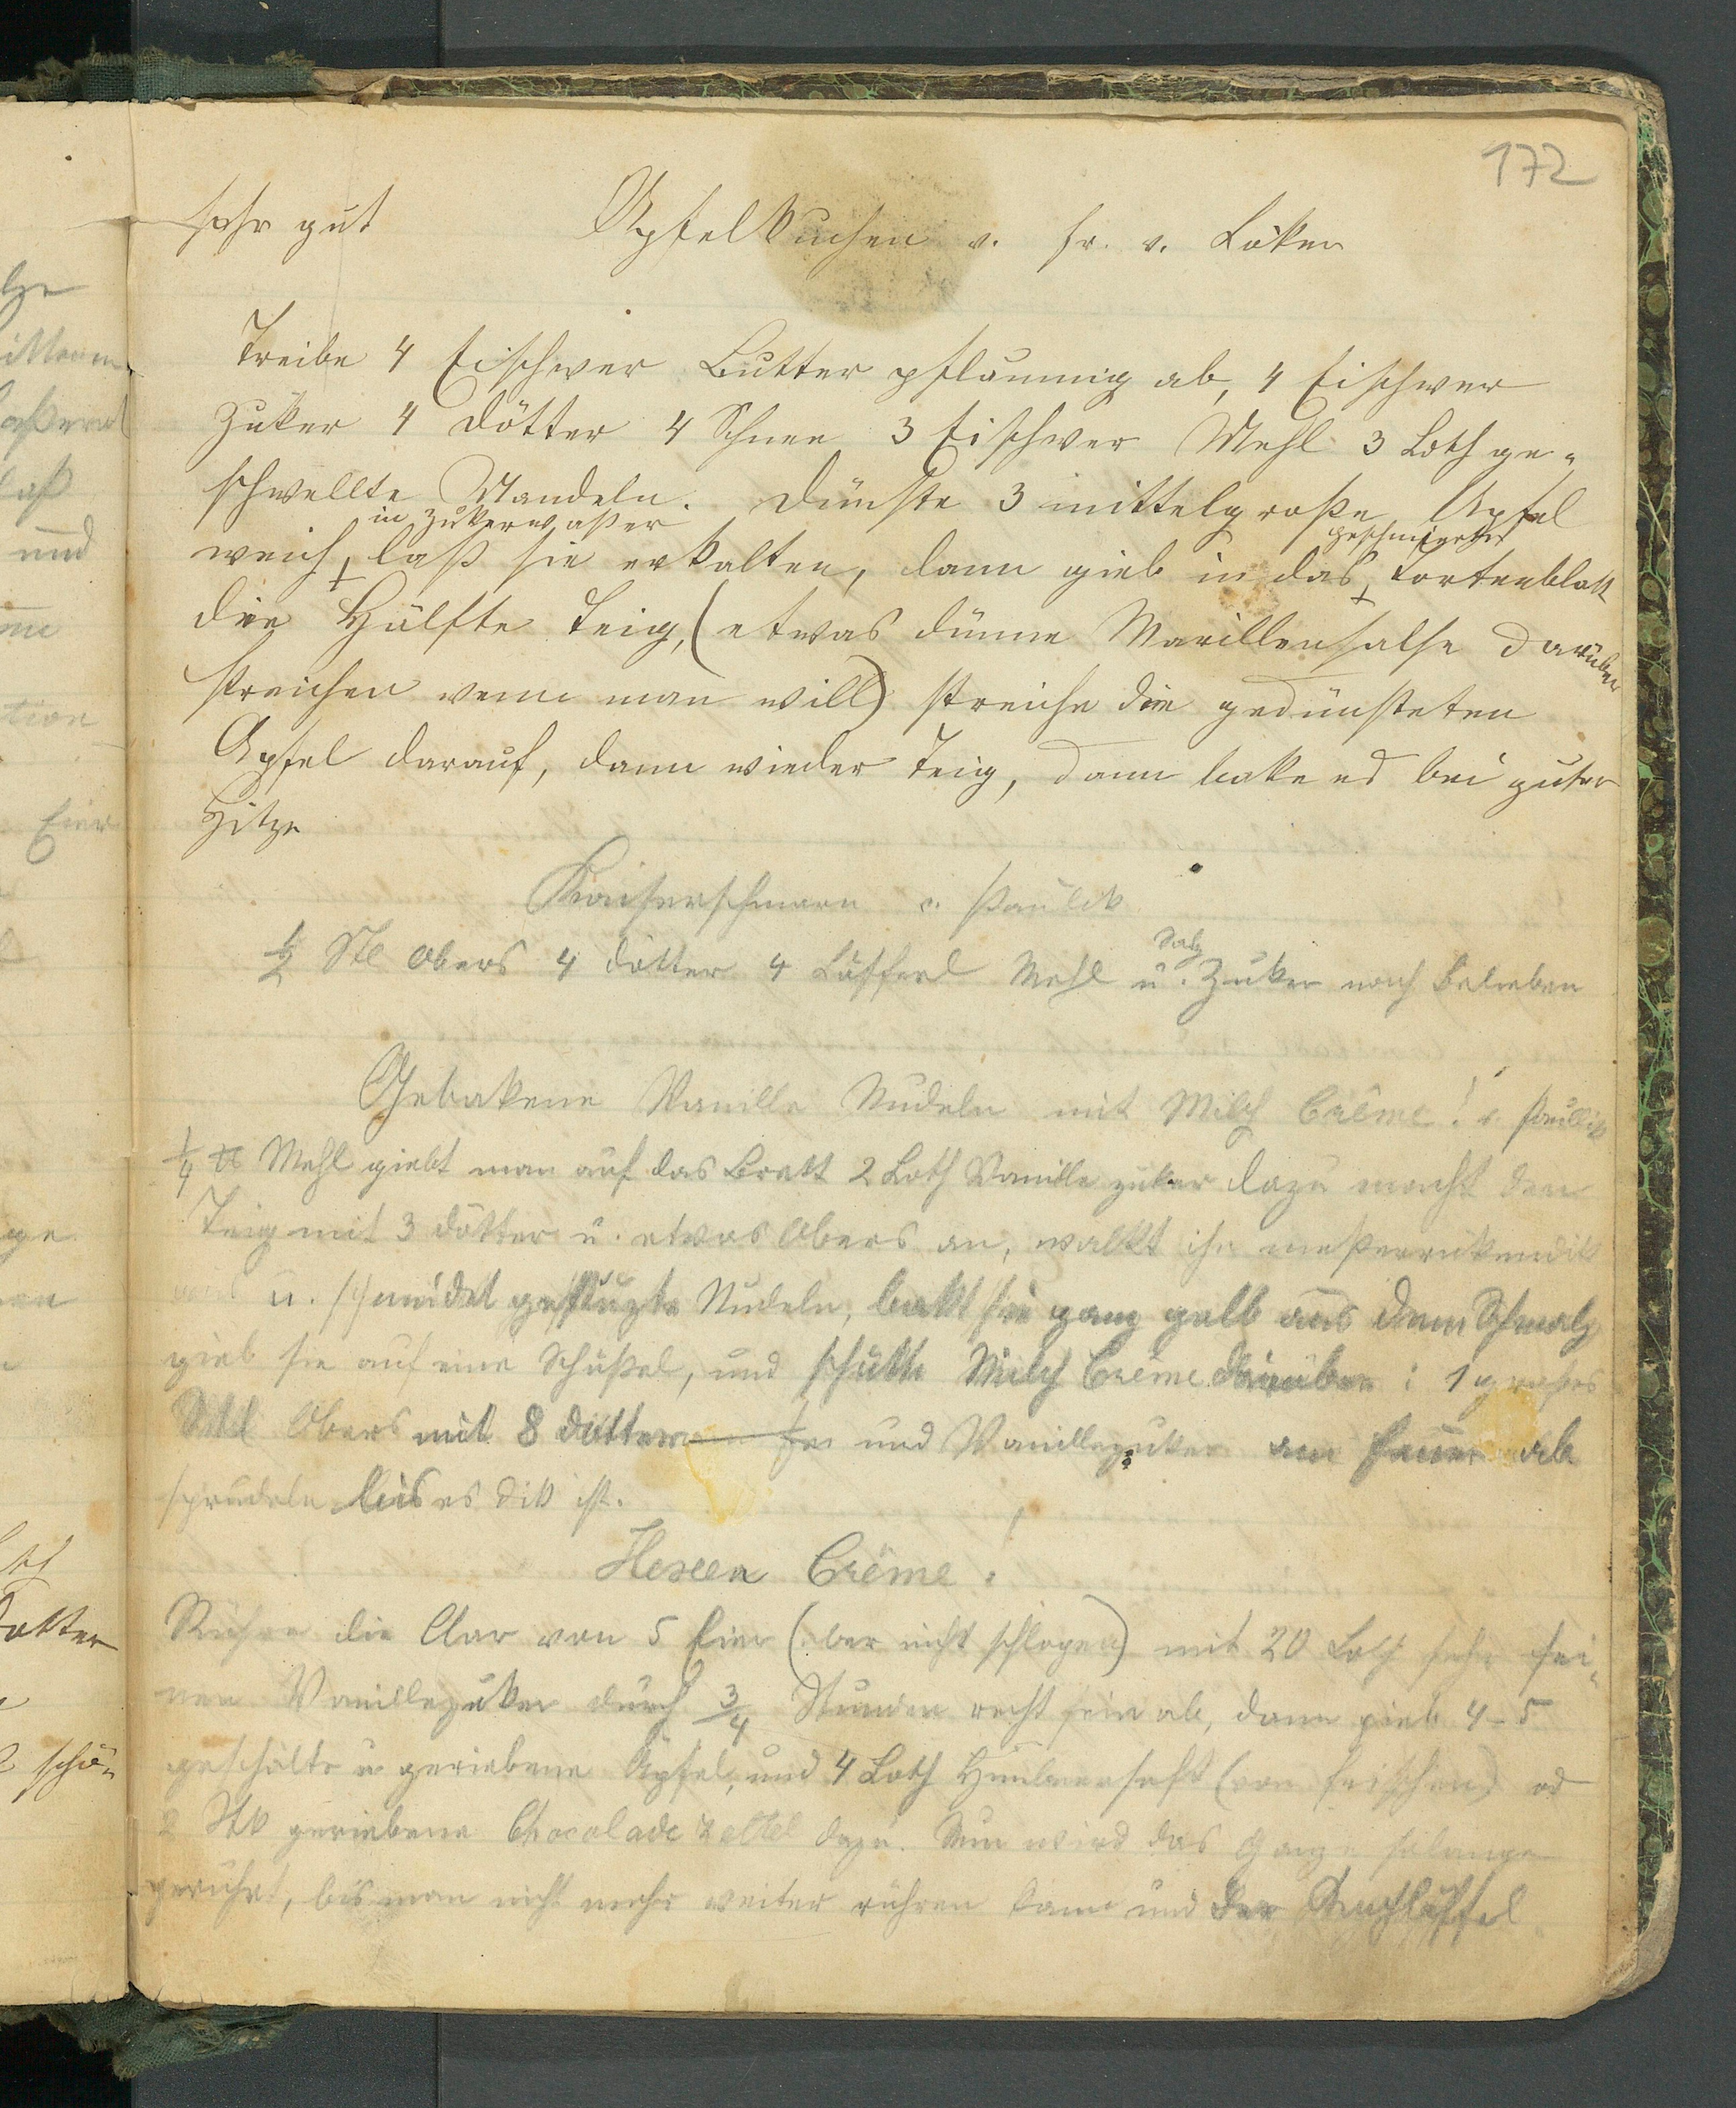 172
sehr gut Apfelkuchen v. Fr. v. Löker
Treibe 4 Eischwer Butter pflaumig ab, 4 Eischwer
Zuker 4 Dötter 4 Schnee 3 Eischwer Mehl 3 Loth ge-
schwellte Mandeln. Dünste 3 mittelgroße Apfel
in Zukerwaßer geschmierte
weich, laß sie erkalten, dann gieb in das Tortenblatt
die Hälfte Teig, (etwas dünne Marillensalse darüber
streichen wenn man will) streiche die gedünsteten
Apfel darauf, dann wieder Teig, dann bake es bei guter
Hitze
Kaiserschmarn v. Paulik
Salz
1/2 Stl Obers 4 Dotter 4 Löfferl Mehl u. Zuker nach Belieben
Gebakene Vanille Nudeln mit Milch Crême! v. Paullik
1/4 ℔ Mehl giebt man auf das Brett 2 Loth Vanille zuker dazu macht den
Teig mit 3 Dötter u. etwas Obers an, walkt ihn meßerrükendik
aus u. schneidet gestuzte Nudeln, bakt sie ganz gelb aus dem Schmalz
gieb sie auf eine Schüßel, und schütte Milch Crême darüber: 1 großes
Stl Obers mit 8 Dotter und Vanillezuker am Feuer ab
sprudeln bis es dik ist.
Hexen Crême!
Rühre die Clar von 5 Eier (aber nicht schlagen) mit 20 Loth sehr fei-
nen Vanillezuker durch 3/4 Stunden recht fein ab, dann gieb 4-5
geschälte u geriebene Äpfel, und 4 Loth Himbeersaft (von frischen) od
2 Stk geriebene Chocolade Zeltel dazu. Nun wird das Ganze solange
gerührt, bis man nicht mehr weiter rühren kann und der Kochlöffel